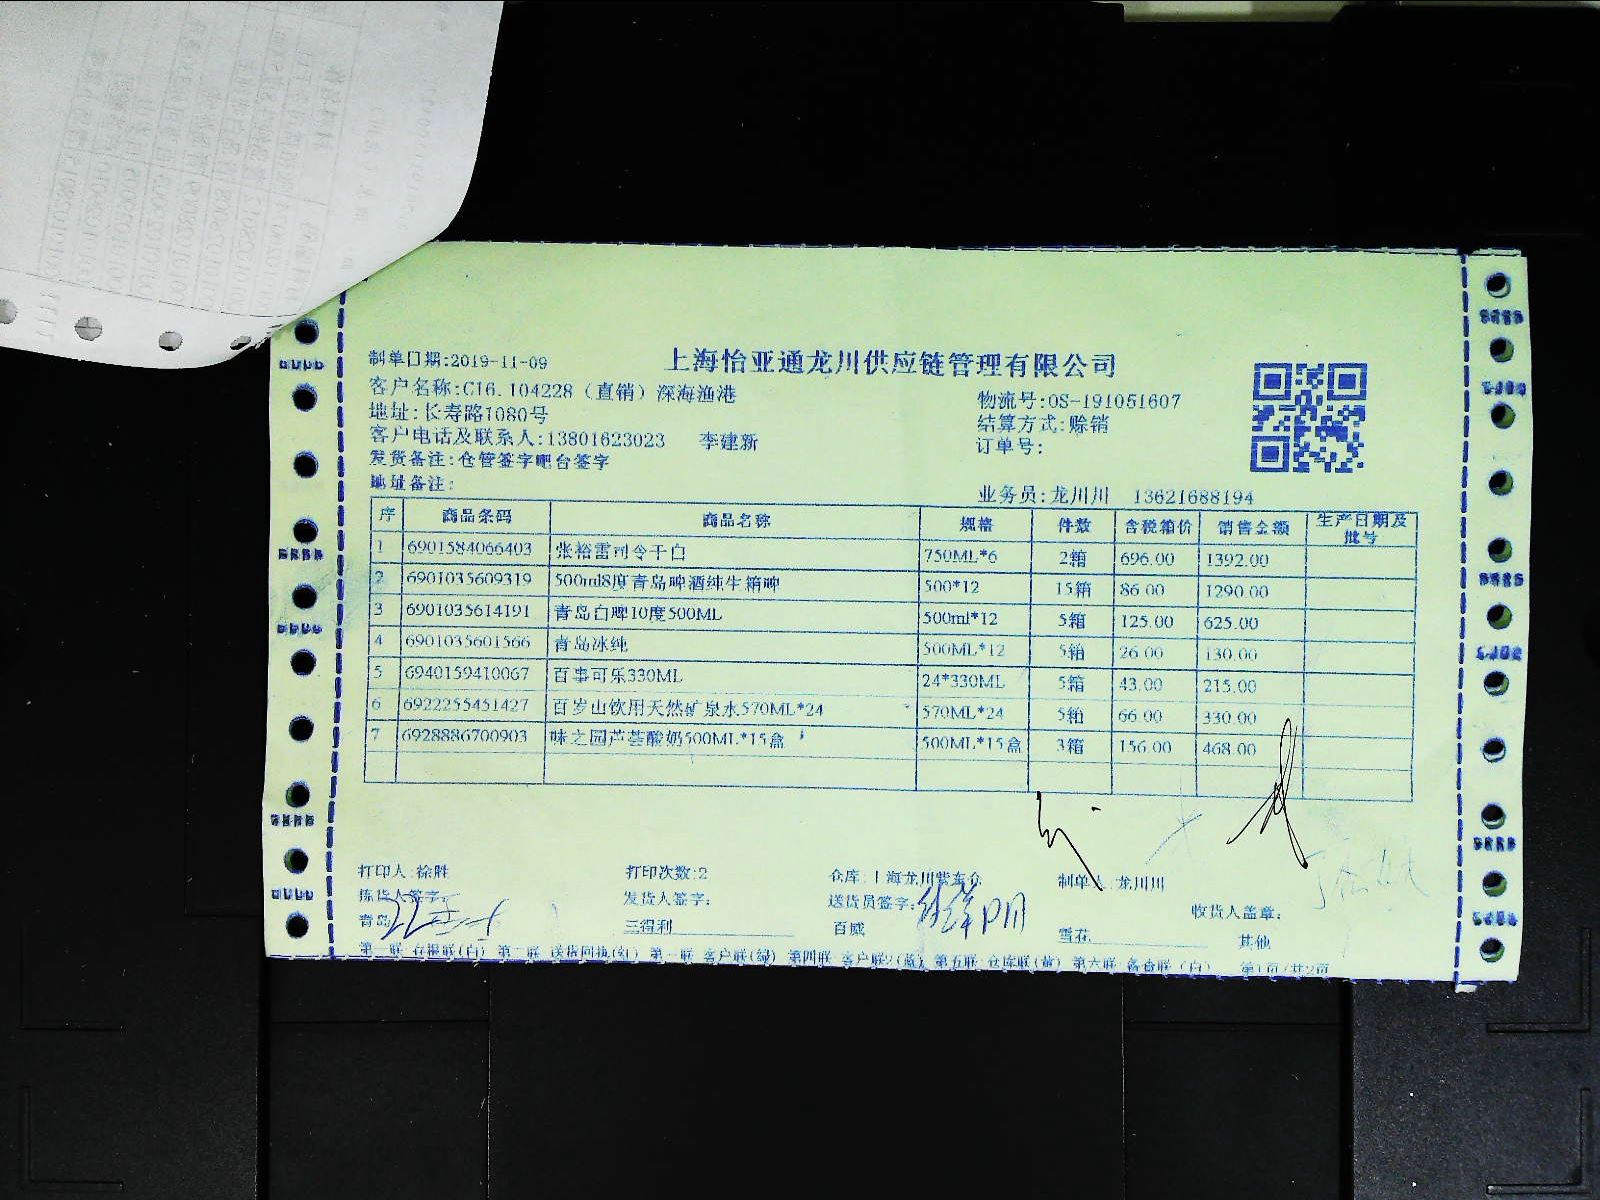 上海怡亚通龙川供应链管理有限公司
制单日期:2019-11-09
客户名称:C16.104228（直销）深海渔港
物流号:OS-191051607
地址:长寿路1080号
结算方式:赊销
客户电话及联系人:13801623023 李建新
订单号:
发货备注:仓管签字吧台签字
地址备注:
业务员:龙川川 13621688194
序 商品条码 商品名称 规格 件数 含税箱价 销售金额 生产日期及批号
1 6901584066403 张裕雷司令干白 750ML*6 2箱 696.00 1392.00
2 6901035609319 500ml8度青岛啤酒纯生箱啤 500*12 15箱 86.00 1290.00
3 6901035614191 青岛白啤10度500ML 500ml*12 5箱 125.00 625.00
4 6901035601566 青岛冰纯 500ML*12 5箱 26.00 130.00
5 6940159410067 百事可乐330ML 24*330ML 5箱 43.00 215.00
6 6922255451427 百岁山饮用天然矿泉水570ML*24 570ML*24 5箱 66.00 330.00
7 6928886700903 味之园芦荟酸奶500ML*15盒 500ML*15盒 3箱 156.00 468.00
打印人:徐胜 打印次数:2 仓库:上海龙川紫东仓 制单人:龙川川
拣货人签字: 发货人签字: 送货员签字: 收货人盖章:
青岛 三得利 百威 雪花 其他
第一联 存根联(白) 第二联 送货回执(红) 第三联 客户联(绿) 第四联 客户联2(蓝) 第五联 仓库联(黄) 第六联 备查联 (白) 第1页/共2页